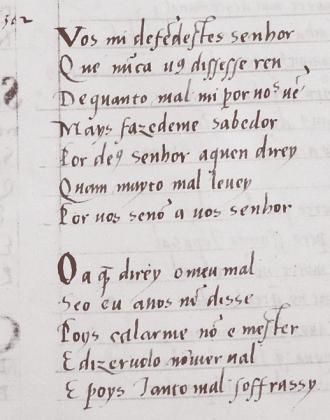 302
Vos mi defẽdestes senhor
Que nũca uꝯ dissesse ren
De quanto mal mi por uos uẽ
Mays fazedeme sabedor
Por deꝯ senhor aquen direy
Quam muyto mal leuey
Por vos senõ a vos senhor
Oa q̃ direy o meu mal
Seo eu a nos nẽ disse
Poys calarme nõ e mester
E dizeruolo nõ uer ual
E poys Tanto mal soffrassy